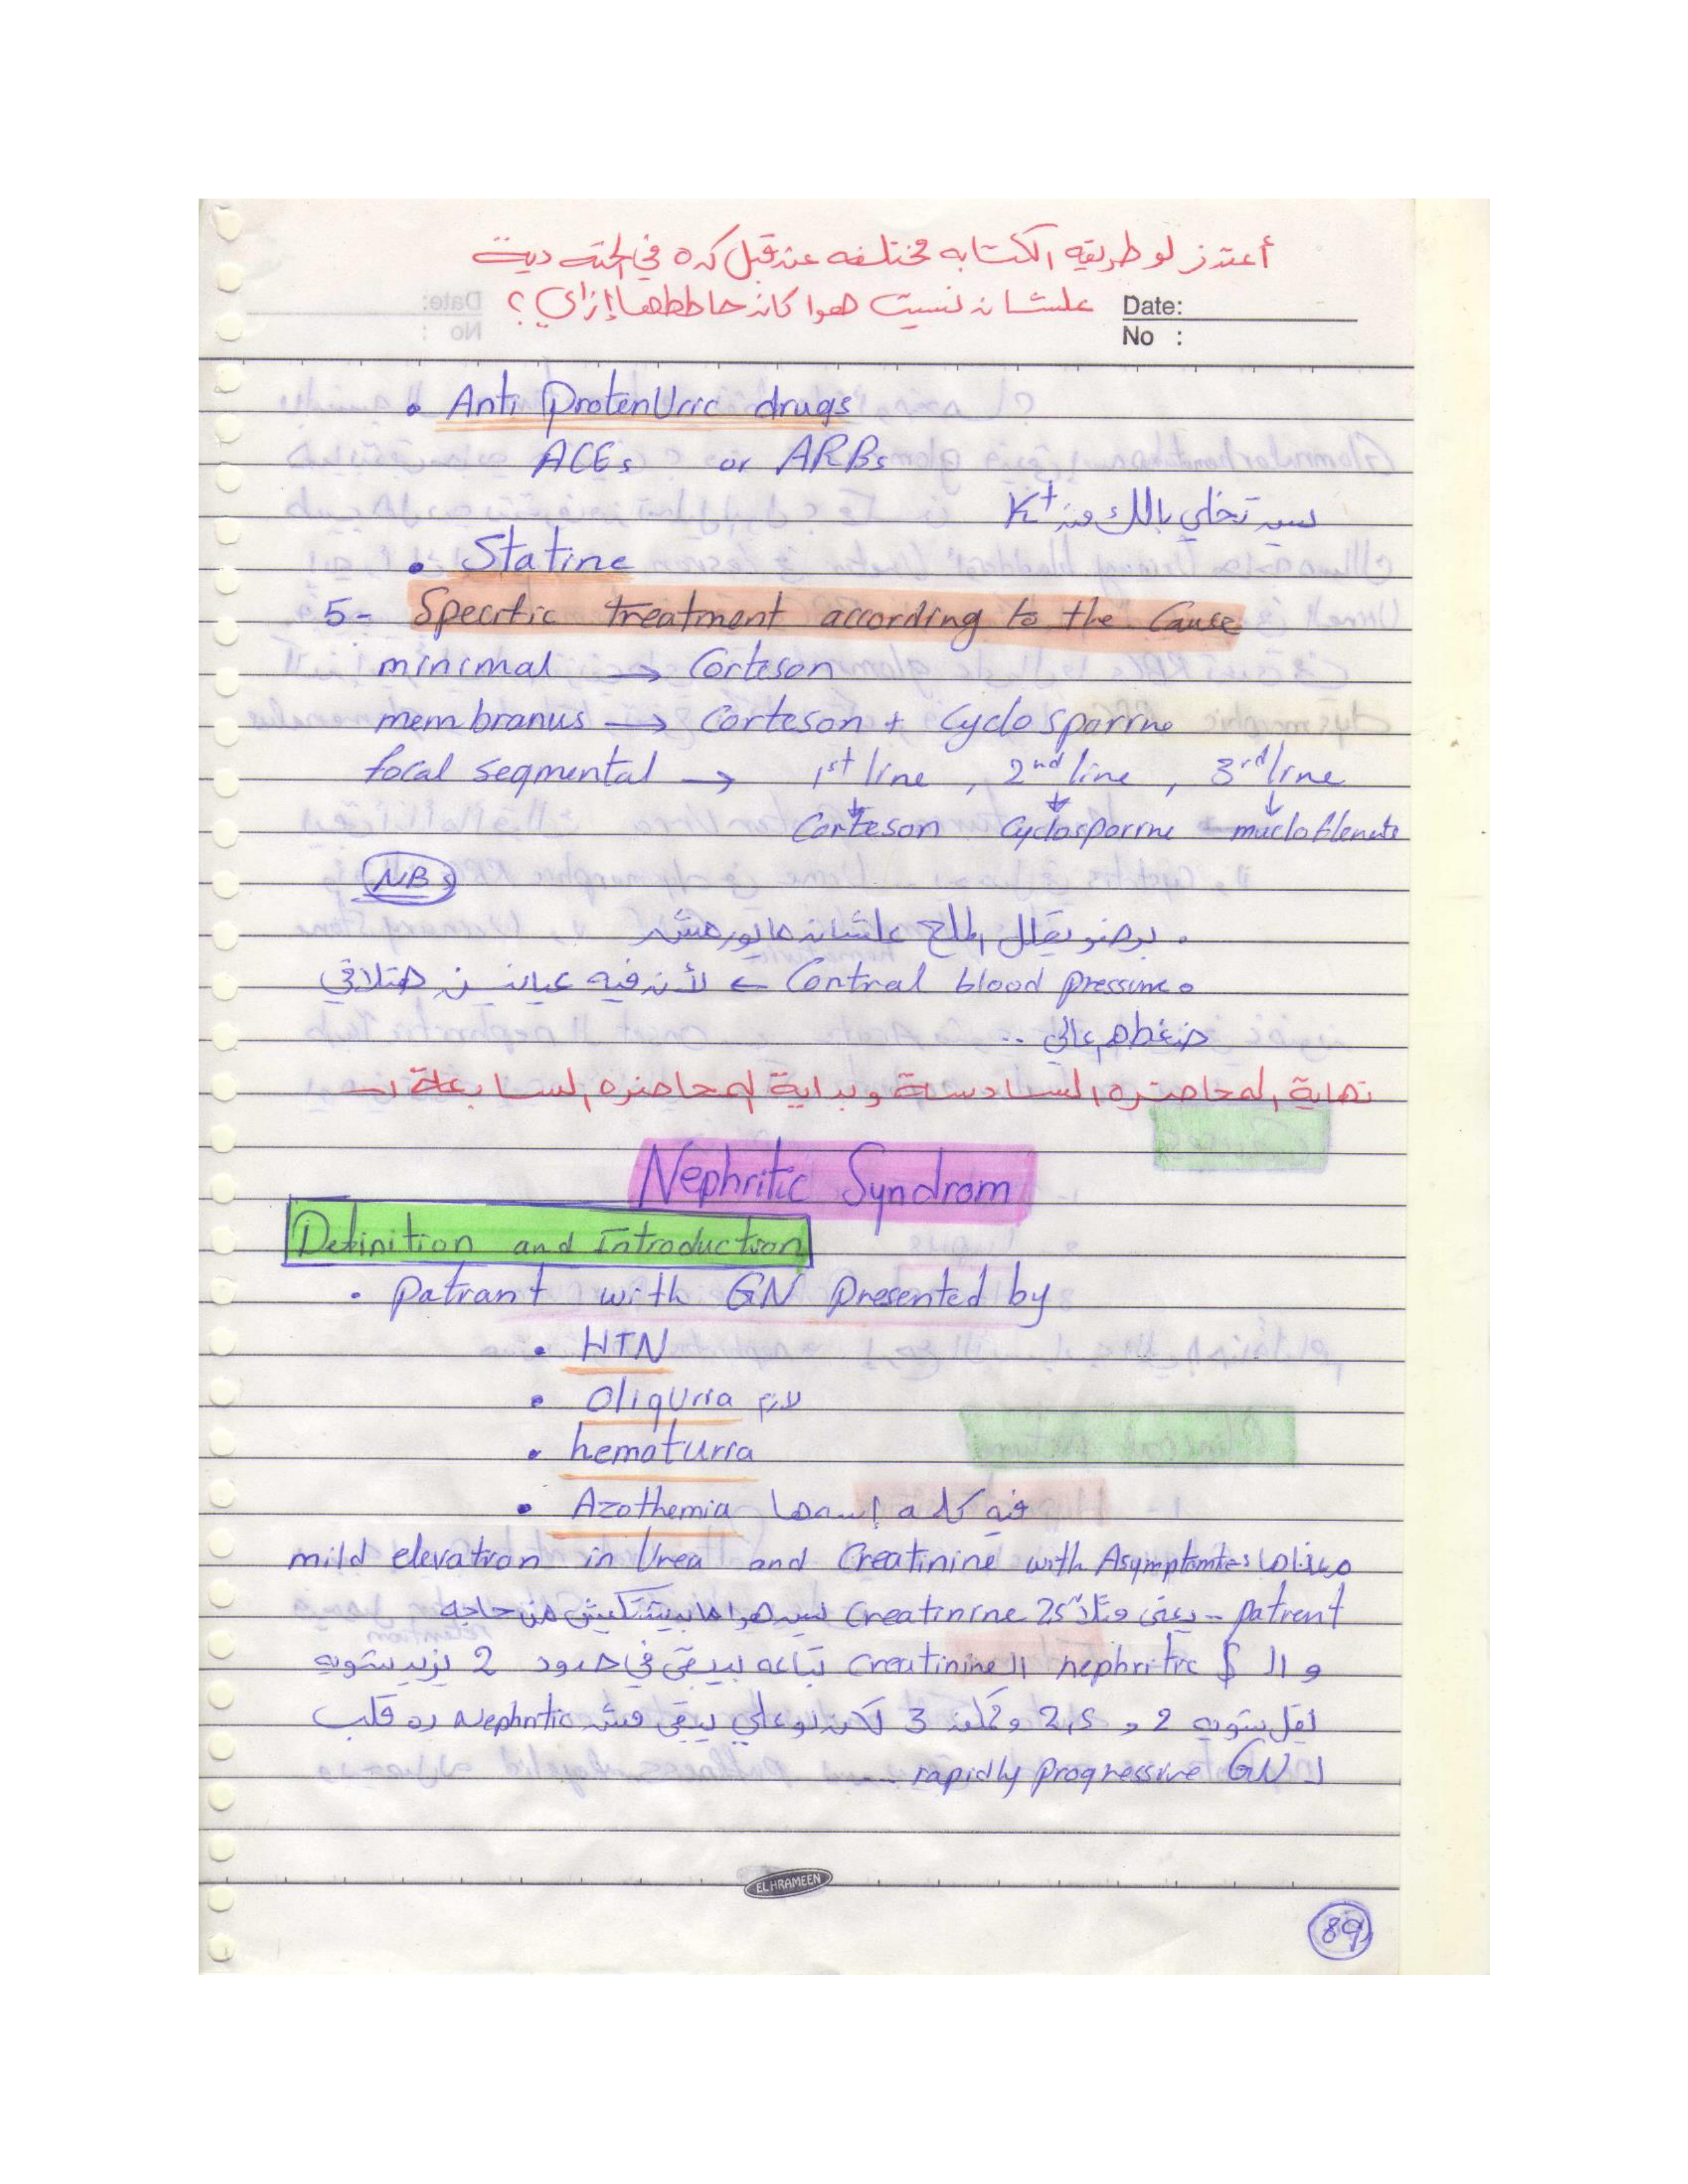 أعتذر لو طريقه الكتابه مختلفه عن قبل كده في الحته دية
علشان نسيت هوا كان حاططها إزاي ؟
Date:
No :
• Anti ProtenUric drugs
ACEs or ARBs
بس تخلي بالك من K+
• Statine
5- Specific treatment according to the Cause
minimal → Corteson
membranus → Corteson + Cyclosporine
focal segmental → 1st line , 2nd line , 3rd line
Corteson Cyclosporine
NB
• برضو يقلل الملح علشان مايورمش
• Contral blood pressure ← لأن فيه عيانين هتلاقي
ضغطهم عالي ..
نهاية المحاضره السادسة وبداية المحاضره السابعة
Nephritic Syndrom
Definition and Introduction
• Patiant with GN Presented by
• HTN
• Oliguria لازم
• hematuria
• Azothemia فيه كلمة إسمها
mild elevation in Urea and Creatinine with Asymptomtes معناها
patient -- يعني مثلا Creatinine 2.5 بس هوا مابيشتكيش من حاجه
و الـ $ nephritic الـ Creatinine بتاعه بيبقي في حدود 2 يزيد شويه
يقل شويه 2 و 2,5 وممكن 3 لكن لو علي يبقي مش Nephritic ده قلب
لـ rapidly progressive GN
EL HRAMEEN
89